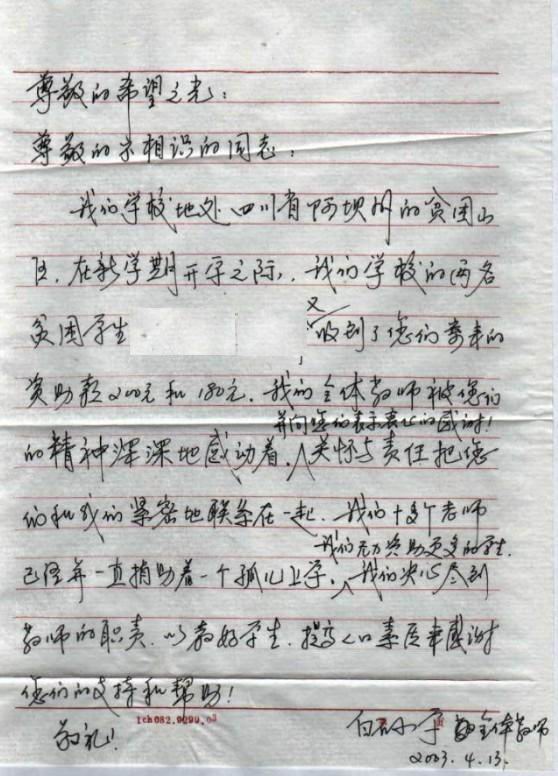 尊敬的希望之光：
尊敬的不相识的同志：
我们学校地处四川省阿坝州的贫困山
区，在新学期开学之际，我们学校的两名
贫困学生 又收到了您们寄来的
资助款200元和180元，我们全体教师被您们
并向您们表示衷心的感谢！
的精神深深地感动着，关怀与责任把您
们和我们紧密地联系在一起，我们十多个老师
我们无力资助更多的学生，
已经年一直捐助着一个孤儿上学，我们决心尽到
教师的职责，以教好学生，提高人口素质来感谢
您们的支持和帮助！
敬礼！
1ch082.9299.03
小学 全体教师
2003.4.13.